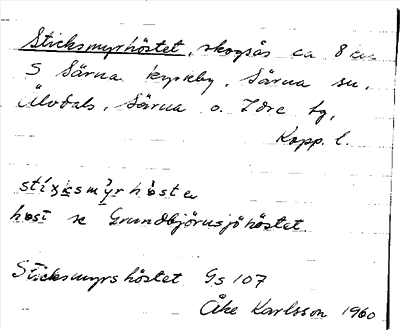 Sticksmyrhöstet, skogsås ca 8 km
S Särna kyrkby, Särna sn,
Älvdals, Särna o. Idre tg,
Kopp. l.
höst se Grundbjörnsjöhöstet
Sticksmyrshöstet Gs 107
Åke Karlsson 1960